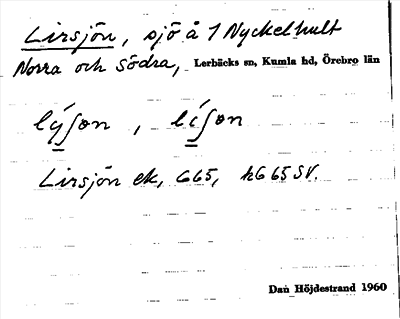 Lirsjön, sjö å 1 Nyckelhult
Norra och Södra, Lerbäcks sn, Kumla hd, Örebro län
lýʃon, líʃon
Lirsjön ek, G65, hG65SV.
Dan Höjdestrand 1960